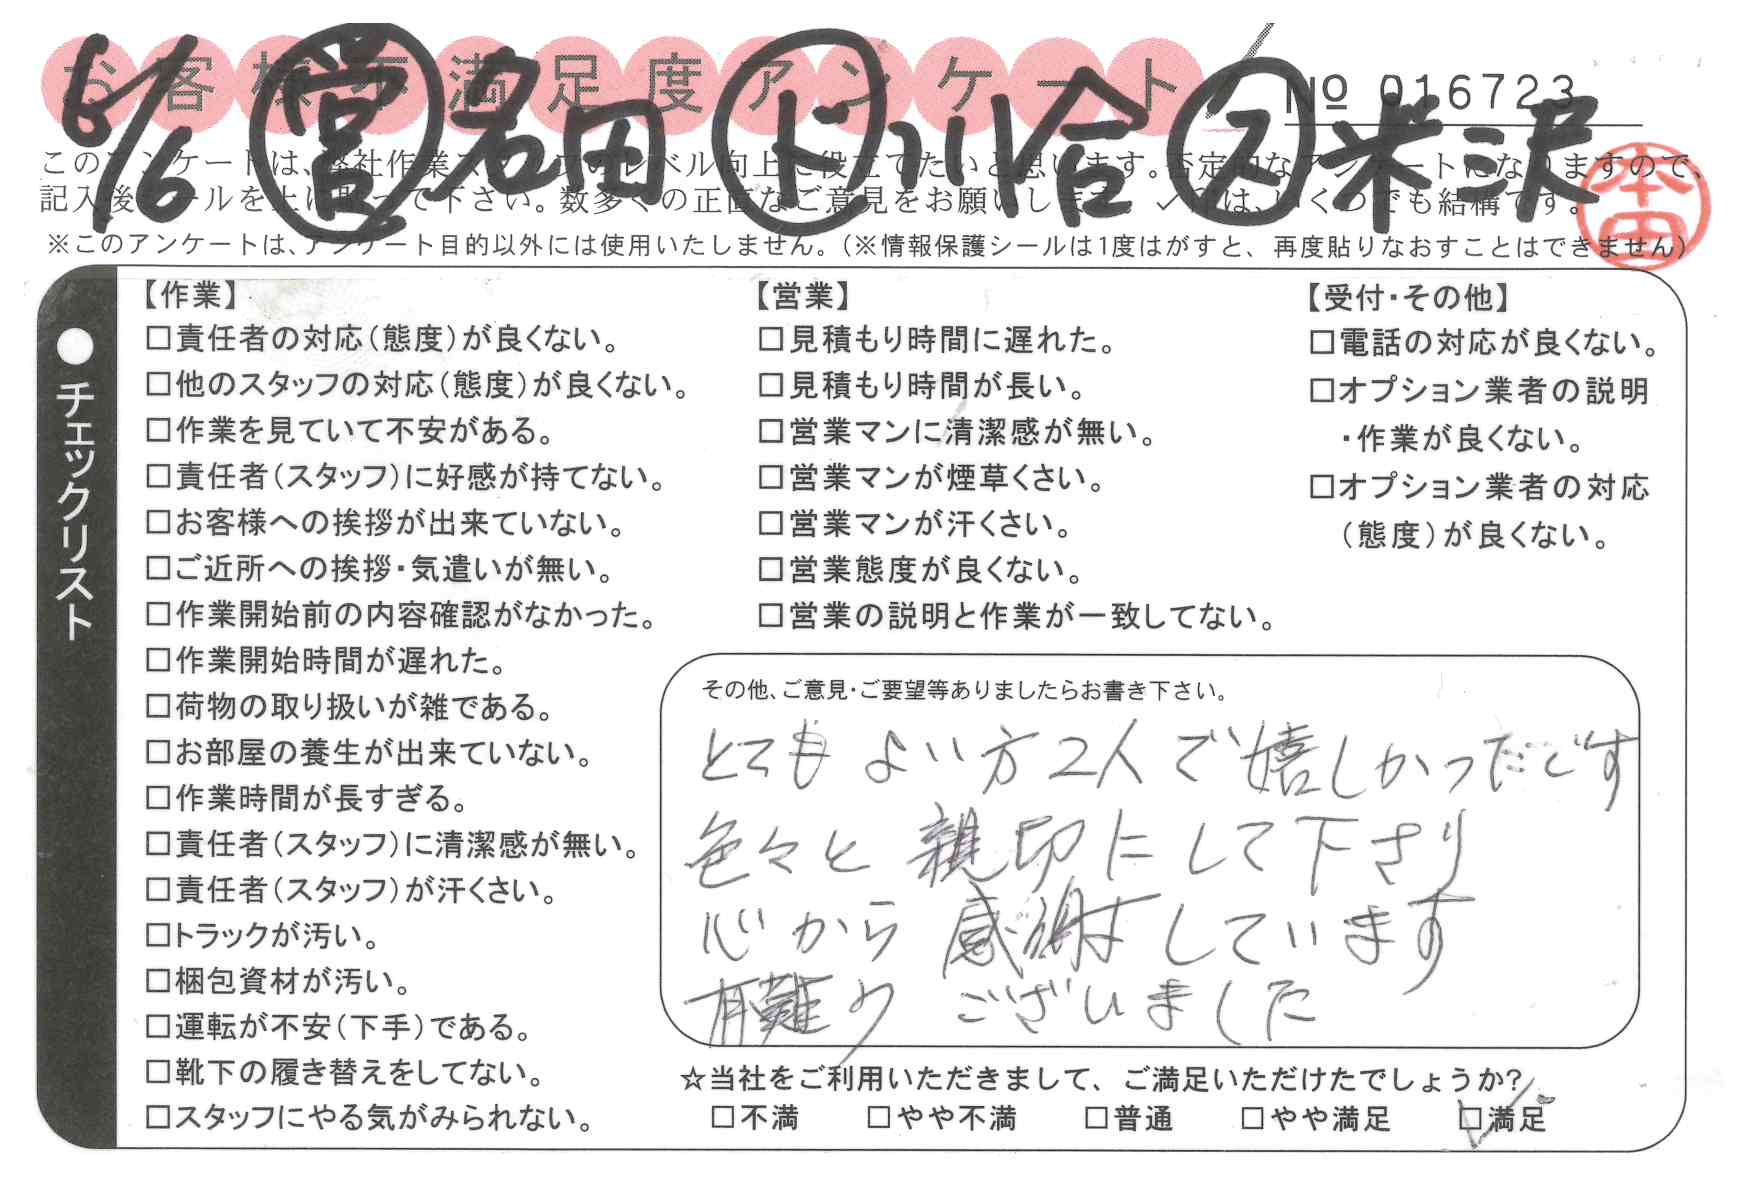 お客様不満足度アンケート
№ 016723
6/6 営 名田 ド 川合 ス 米沢
このアンケートは、弊社作業スタッフのレベル向上に役立てたいと思います。否定的なアンケートになりますので、
記入後シールを上に貼って下さい。数多くの正直なご意見をお願いします。✓印は、いくつでも結構です。
本田
※このアンケートは、アンケート目的以外には使用いたしません。(※情報保護シールは1度はがすと、再度貼りなおすことはできません)
●チェックリスト
【作業】
□責任者の対応(態度)が良くない。
□他のスタッフの対応(態度)が良くない。
□作業を見ていて不安がある。
□責任者(スタッフ)に好感が持てない。
□お客様への挨拶が出来ていない。
□ご近所への挨拶・気遣いが無い。
□作業開始前の内容確認がなかった。
□作業開始時間が遅れた。
□荷物の取り扱いが雑である。
□お部屋の養生が出来ていない。
□作業時間が長すぎる。
□責任者(スタッフ)に清潔感が無い。
□責任者(スタッフ)が汗くさい。
□トラックが汚い。
□梱包資材が汚い。
□運転が不安(下手)である。
□靴下の履き替えをしてない。
□スタッフにやる気がみられない。
【営業】
□見積もり時間に遅れた。
□見積もり時間が長い。
□営業マンに清潔感が無い。
□営業マンが煙草くさい。
□営業マンが汗くさい。
□営業態度が良くない。
□営業の説明と作業が一致してない。
【受付・その他】
□電話の対応が良くない。
□オプション業者の説明
・作業が良くない。
□オプション業者の対応
(態度)が良くない。
その他、ご意見・ご要望等ありましたらお書き下さい。
とても よい方2人で嬉しかったです
色々と 親切にして下さり
心から 感謝しています
有難う ございました
☆当社をご利用いただきまして、ご満足いただけたでしょうか?
□不満 □やや不満 □普通 □やや満足 ☑満足